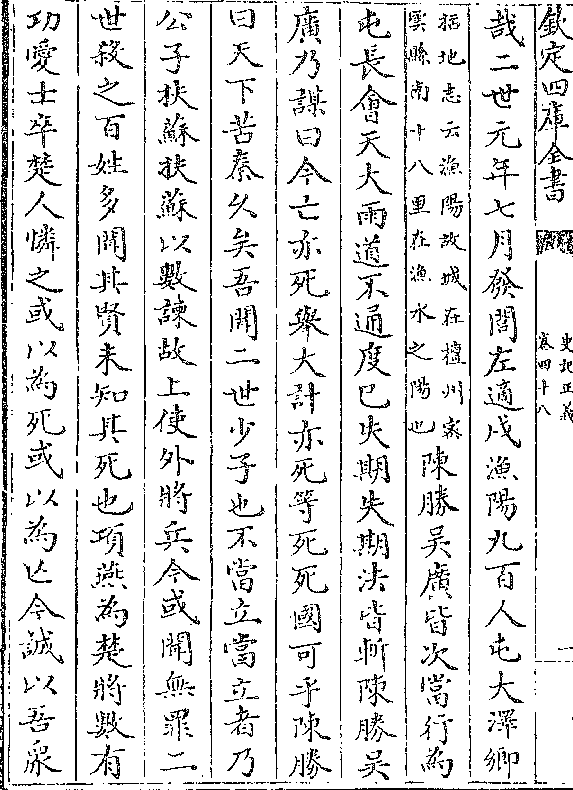 欽定四庫全書
史記正義
卷四十八
哉二世元年七月發閭左適戍漁陽九百人屯大澤鄉
括地志云漁陽故城在檀州密
雲縣南十八里在漁水之陽也
陳勝吳廣皆次當行為
屯長會天大雨道不通度已失期失期法皆斬陳勝吳
廣乃謀曰今亡亦死舉大計亦死等死死國可乎陳勝
曰天下苦秦久矣吾聞二世少子也不當立當立者乃
公子扶蘇扶蘇以數諫故上使外將兵今或聞無罪二
世殺之百姓多聞其賢未知其死也項燕為楚將數有
功愛士卒楚人憐之或以為死或以為亡今誠以吾衆